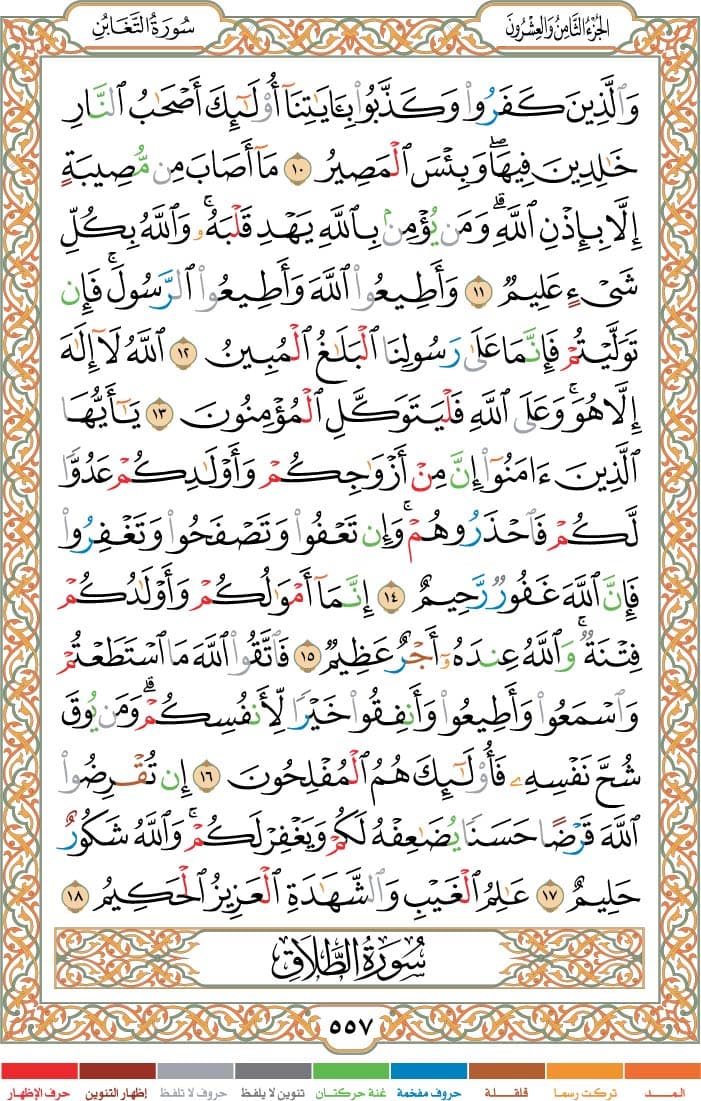 الجزء الثامن والعشرون
سورة التغابن
وَٱلَّذِينَ كَفَرُوا۟ وَكَذَّبُوا۟ بِـَٔايَـٰتِنَآ أُو۟لَـٰٓئِكَ أَصْحَـٰبُ ٱلنَّارِ
خَـٰلِدِينَ فِيهَا ۖ وَبِئْسَ ٱلْمَصِيرُ ١٠ مَآ أَصَابَ مِن مُّصِيبَةٍ
إِلَّا بِإِذْنِ ٱللَّهِ ۗ وَمَن يُؤْمِنۢ بِٱللَّهِ يَهْدِ قَلْبَهُۥ ۚ وَٱللَّهُ بِكُلِّ
شَىْءٍ عَلِيمٌ ١١ وَأَطِيعُوا۟ ٱللَّهَ وَأَطِيعُوا۟ ٱلرَّسُولَ ۚ فَإِن
تَوَلَّيْتُمْ فَإِنَّمَا عَلَىٰ رَسُولِنَا ٱلْبَلَـٰغُ ٱلْمُبِينُ ١٢ ٱللَّهُ لَآ إِلَـٰهَ
إِلَّا هُوَ ۚ وَعَلَى ٱللَّهِ فَلْيَتَوَكَّلِ ٱلْمُؤْمِنُونَ ١٣ يَـٰٓأَيُّهَا
ٱلَّذِينَ ءَامَنُوٓا۟ إِنَّ مِنْ أَزْوَٰجِكُمْ وَأَوْلَـٰدِكُمْ عَدُوًّا
لَّكُمْ فَٱحْذَرُوهُمْ ۚ وَإِن تَعْفُوا۟ وَتَصْفَحُوا۟ وَتَغْفِرُوا۟
فَإِنَّ ٱللَّهَ غَفُورٌ رَّحِيمٌ ١٤ إِنَّمَآ أَمْوَٰلُكُمْ وَأَوْلَـٰدُكُمْ
فِتْنَةٌ ۚ وَٱللَّهُ عِندَهُۥٓ أَجْرٌ عَظِيمٌ ١٥ فَٱتَّقُوا۟ ٱللَّهَ مَا ٱسْتَطَعْتُمْ
وَٱسْمَعُوا۟ وَأَطِيعُوا۟ وَأَنفِقُوا۟ خَيْرًا لِّأَنفُسِكُمْ ۗ وَمَن يُوقَ
شُحَّ نَفْسِهِۦ فَأُو۟لَـٰٓئِكَ هُمُ ٱلْمُفْلِحُونَ ١٦ إِن تُقْرِضُوا۟
ٱللَّهَ قَرْضًا حَسَنًا يُضَـٰعِفْهُ لَكُمْ وَيَغْفِرْ لَكُمْ ۚ وَٱللَّهُ شَكُورٌ
حَلِيمٌ ١٧ عَـٰلِمُ ٱلْغَيْبِ وَٱلشَّهَـٰدَةِ ٱلْعَزِيزُ ٱلْحَكِيمُ ١٨
سُورَةُ الطَّلَاقِ
٥٥٧
المـــد تركت رسما قلقـــلة حروف مفخمة غنة حركتـان تنوين لا يلفظ حروف لا تلفظ إظهار التنوين حرف الإظهار